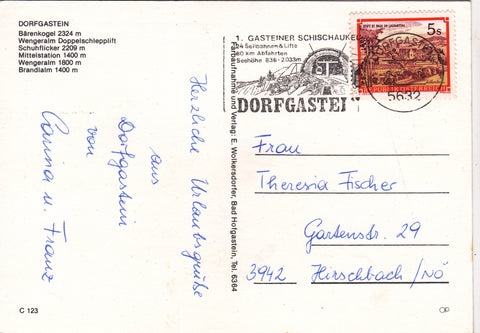 DORFGASTEIN
Bärenkogel 2324 m
Wengeralm Doppelschlepplift
Schuhflicker 2209 m
Mittelstation 1400 m
Wengeralm 1800 m
Brandlalm 1400 m
Herzliche Urlaubsgrüße
aus
Dorfgastein
von
Carina u. Franz
C 123
Farbaufnahme und Verlag: E. Wolkersdorfer, Bad Hofgastein, Tel. 6364
1. GASTEINER SCHISCHAUKEL
24 Seilbahnen & Lifte
60 km Abfahrten
Seehöhe 836-2033m
DORFGASTEIN
DORFGASTEIN
5632
5s
REPUBLIK ÖSTERREICH
Frau
Theresia Fischer
Gartenstr. 29
3942 Hirschbach/NÖ